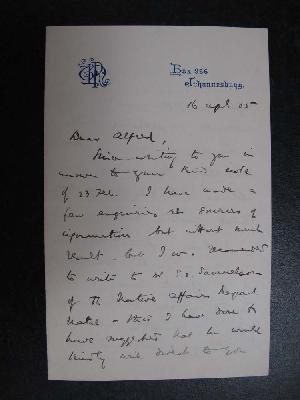 Box 256
Johannesburg.
16 Apl 05
Dear Alfred,
Since writing to you in
answer to your kind note
of 23 Feb. I have made a
few enquiries re sources of
information but without much
result. but I was recommended
to write to Mr S.O. Samuelson
of the Native Affairs Depart
Natal - this I have done &
have suggested that he would
kindly write direct to you